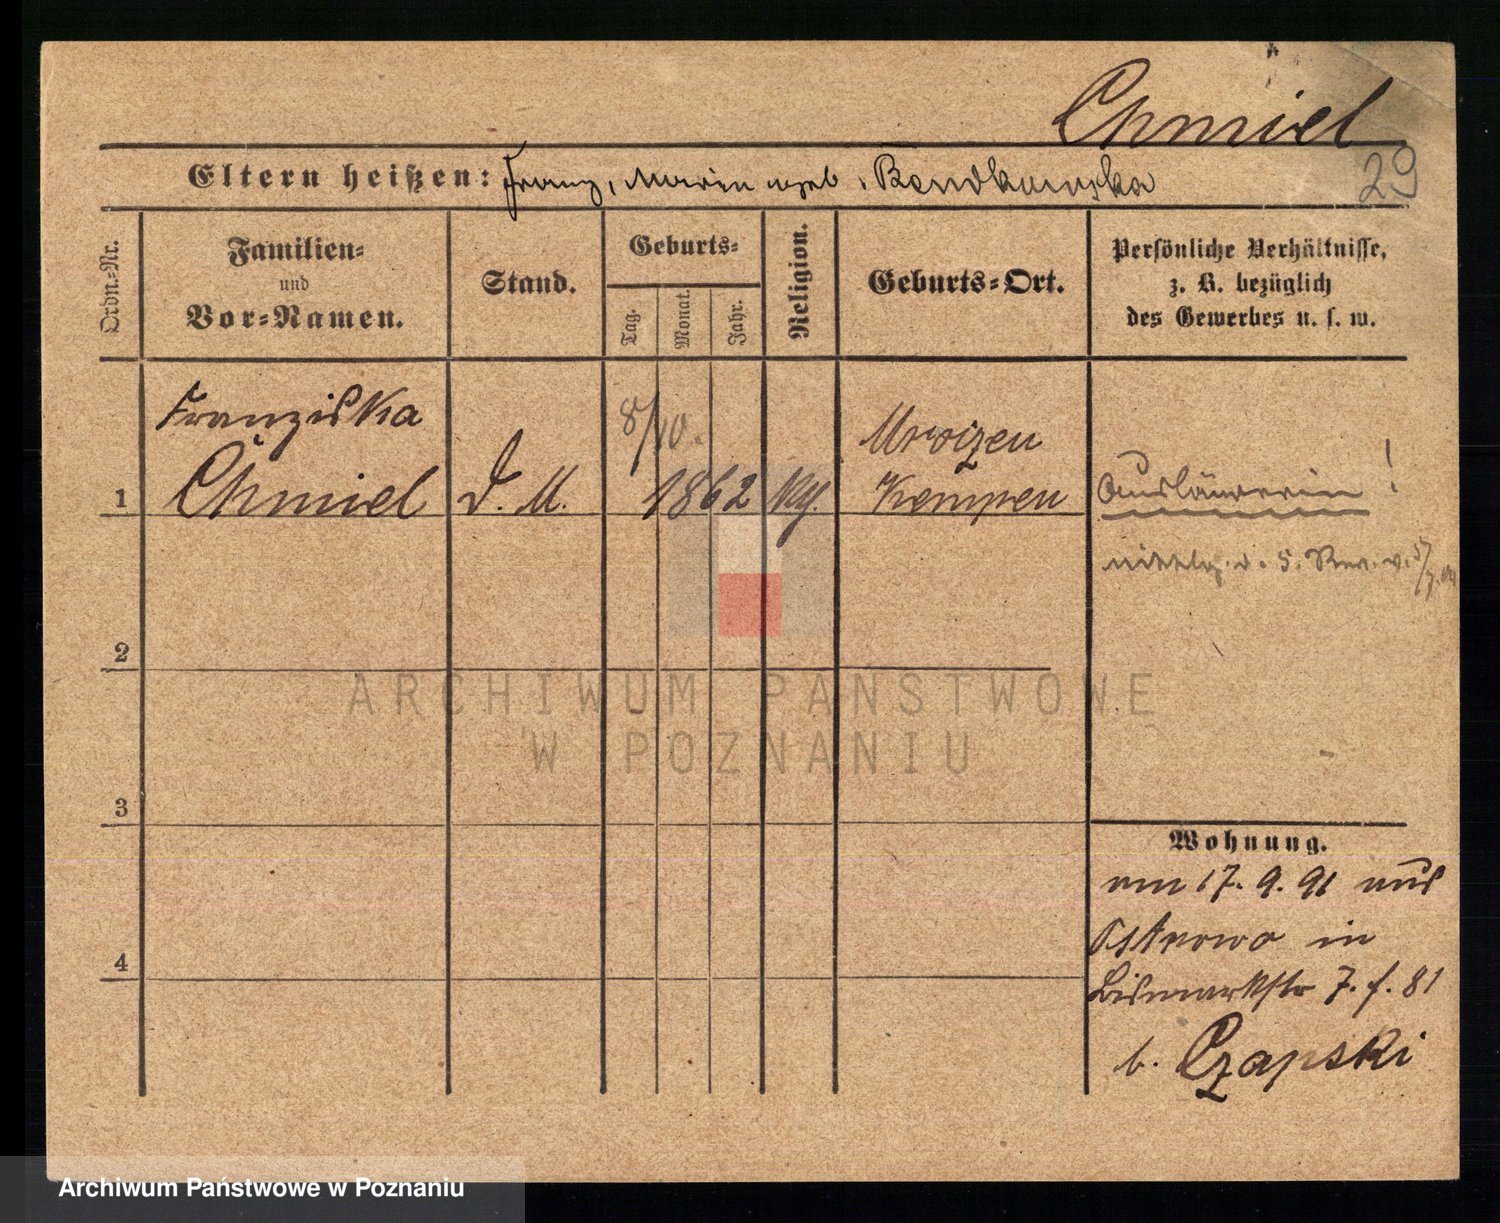 Chmiel
Eltern heißen: Franz, Maria geb.
29
Ordn.-Nr.
Familien-
und
Vor-Namen.
Stand.
Geburts-
Tag.
Monat.
Jahr.
Religion.
Geburts-Ort.
Persönliche Verhältnisse,
z. B. bezüglich
des Gewerbes u. s. w.
Franziska
8/10.
1
Chmiel
D. M.
1862
Kempen
Ausländerin !
2
ARCHIWUM PAŃSTWOWE
W POZNANIU
3
Wohnung.
am 17. 9. 91 aus
Ostrowo in
4
Bismarkstr 7. f. 81
b. Czapski
Archiwum Państwowe w Poznaniu